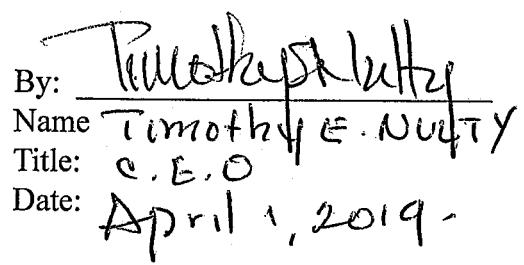 By: Timothy E Nulty
Name Timothy E. NULTY
Title: C.E.O
Date: April 1, 2019.